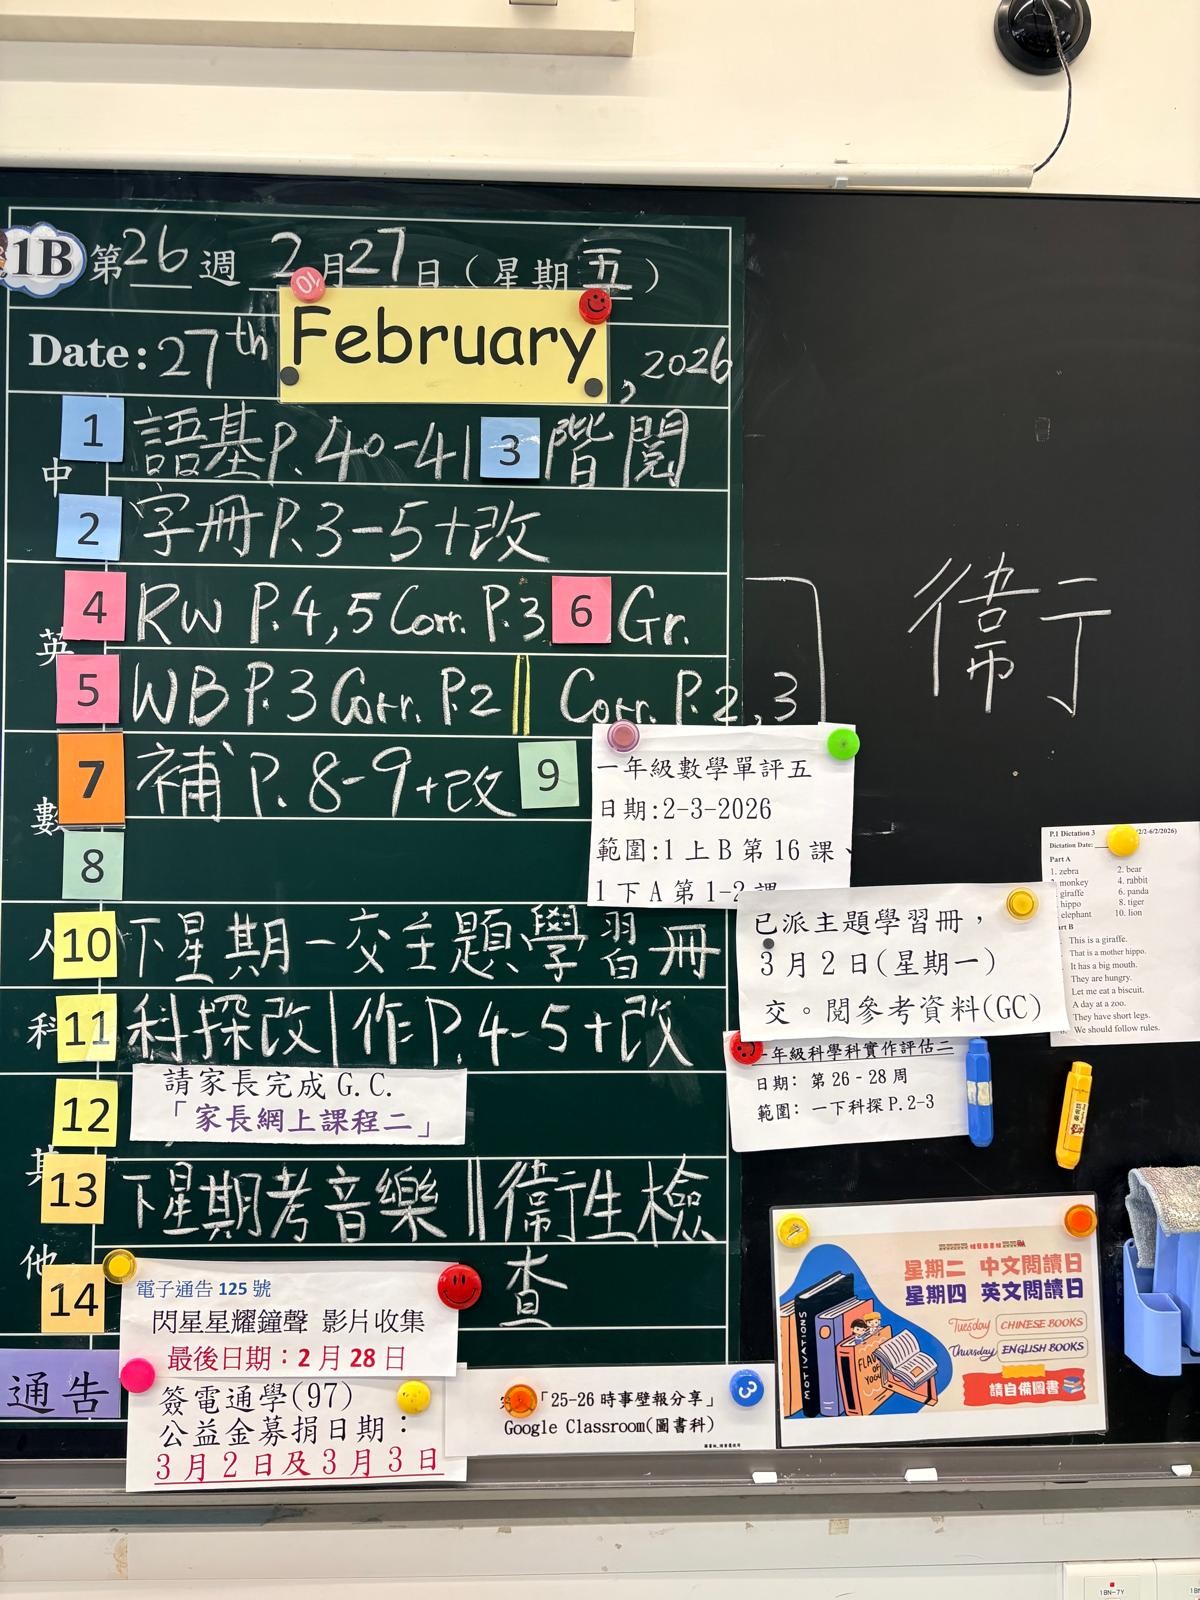 1B 第26週 2月27日(星期五)
10
Date: 27th February, 2026
中
1 語基P.40-41 3 階閱
2 字冊P.3-5+改
英
4 RW P.4,5 Corr. P.3 6 Gr.
5 WB P.3 Corr. P.2 || Corr. P.2,3
數
7 補P.8-9+改 9
8
人
10 下星期一交主題學習冊
科
11 科探改|作P.4-5+改
12 請家長完成 G.C.
「家長網上課程二」
其他
13 下星期考音樂||衞生檢
查
14
電子通告 125 號
閃星星耀鐘聲 影片收集
最後日期：2 月 28 日
通告
簽電通學(97)
公益金募捐日期：
3 月 2 日及 3 月 3 日
「25-26 時事壁報分享」
Google Classroom(圖書科)
3
衞
一年級數學單評五
日期:2-3-2026
範圍:1 上 B 第 16 課、
1 下 A 第 1-2 課
已派主題學習冊，
3 月 2 日(星期一)
交。閱參考資料(GC)
一年級科學科實作評估二
日期： 第 26 - 28 周
範圍： 一下科探 P.2-3
P.1 Dictation 3 2/2-6/2/2026)
Dictation Date:
Part A
1. zebra 2. bear
monkey 4. rabbit
giraffe 6. panda
hippo 8. tiger
elephant 10. lion
Part B
This is a giraffe.
That is a mother hippo.
It has a big mouth.
They are hungry.
Let me eat a biscuit.
A day at a zoo.
They have short legs.
We should follow rules.
星期二 中文閱讀日
星期四 英文閱讀日
Tuesday CHINESE BOOKS
Thursday ENGLISH BOOKS
請自備圖書
MOTIVATIONS
1BN-7Y